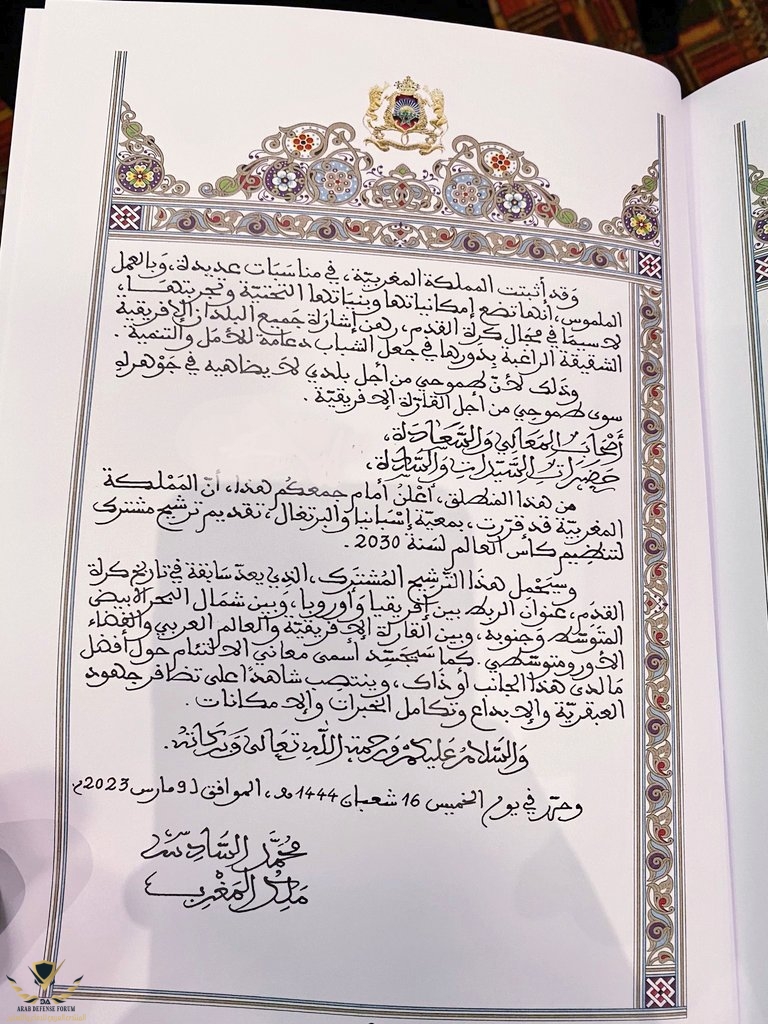 وقد أثبتت المملكة المغربية، في مناسبات عديدة، وبالعمل
الملموس، أنها تضع إمكانياتها وبنياتها التحتية وتجربتها،
لا سيما في مجال كرة القدم، رهن إشارة جميع البلدان الإفريقية
الشقيقة الراغبة بدورها في جعل الشباب دعامة للأمل والتنمية.
وذلك لأنّ طموحي من أجل بلدي لا يضاهيه في جوهره
سوى طموحي من أجل القارة الإفريقية.
أَصْحَابَ المَعَالي وَالسَّعَادَة،
حَضَرَات السَّيِّدَات وَالسَّادَة،
من هذا المنطلق، أعْلنُ أمام جمعكم هذا، أنّ المَمْلكة
المغربية قد قرّرت، بمعيّة إسْبانيا والبرتغال، تقديم ترشيح مشترك
لتنظيم كأس العالم لسَنة 2030.
وسيَحْمل هذَا التّرشيح المُشترَك، الذِي يعدّ سَابقة في تاريخ كرة
القدَم، عنوان الربط بين إفريقيا وأوروبا، وبين شمال البحر الأبيض
المتوَسّط وجَنوبه، وبين القارة الإفريقيّة والعالم العربي والفضاء
الأورومتوسّطي. كما سَيُجَسّد أسمى معاني الالتئام حول أفضل
مَا لدى هذا الجانب أو ذاك، وينتصِب شاهدًا على تظافر جهود
العبقريّة والإبداع وتكامل الخبرات والإمكانات.
وَالسَّلامُ عَليكم وَرحمة اللّه تعَالى وَبَرَكاتُه.
وحرّر في يوم الخميس 16 شعبان 1444 هـ، الموافق لـ 9 مارس 2023م
مُحمَّد السَّادِسُ
مَلِكُ المَغْرِبِ
ARAB DEFENSE FORUM